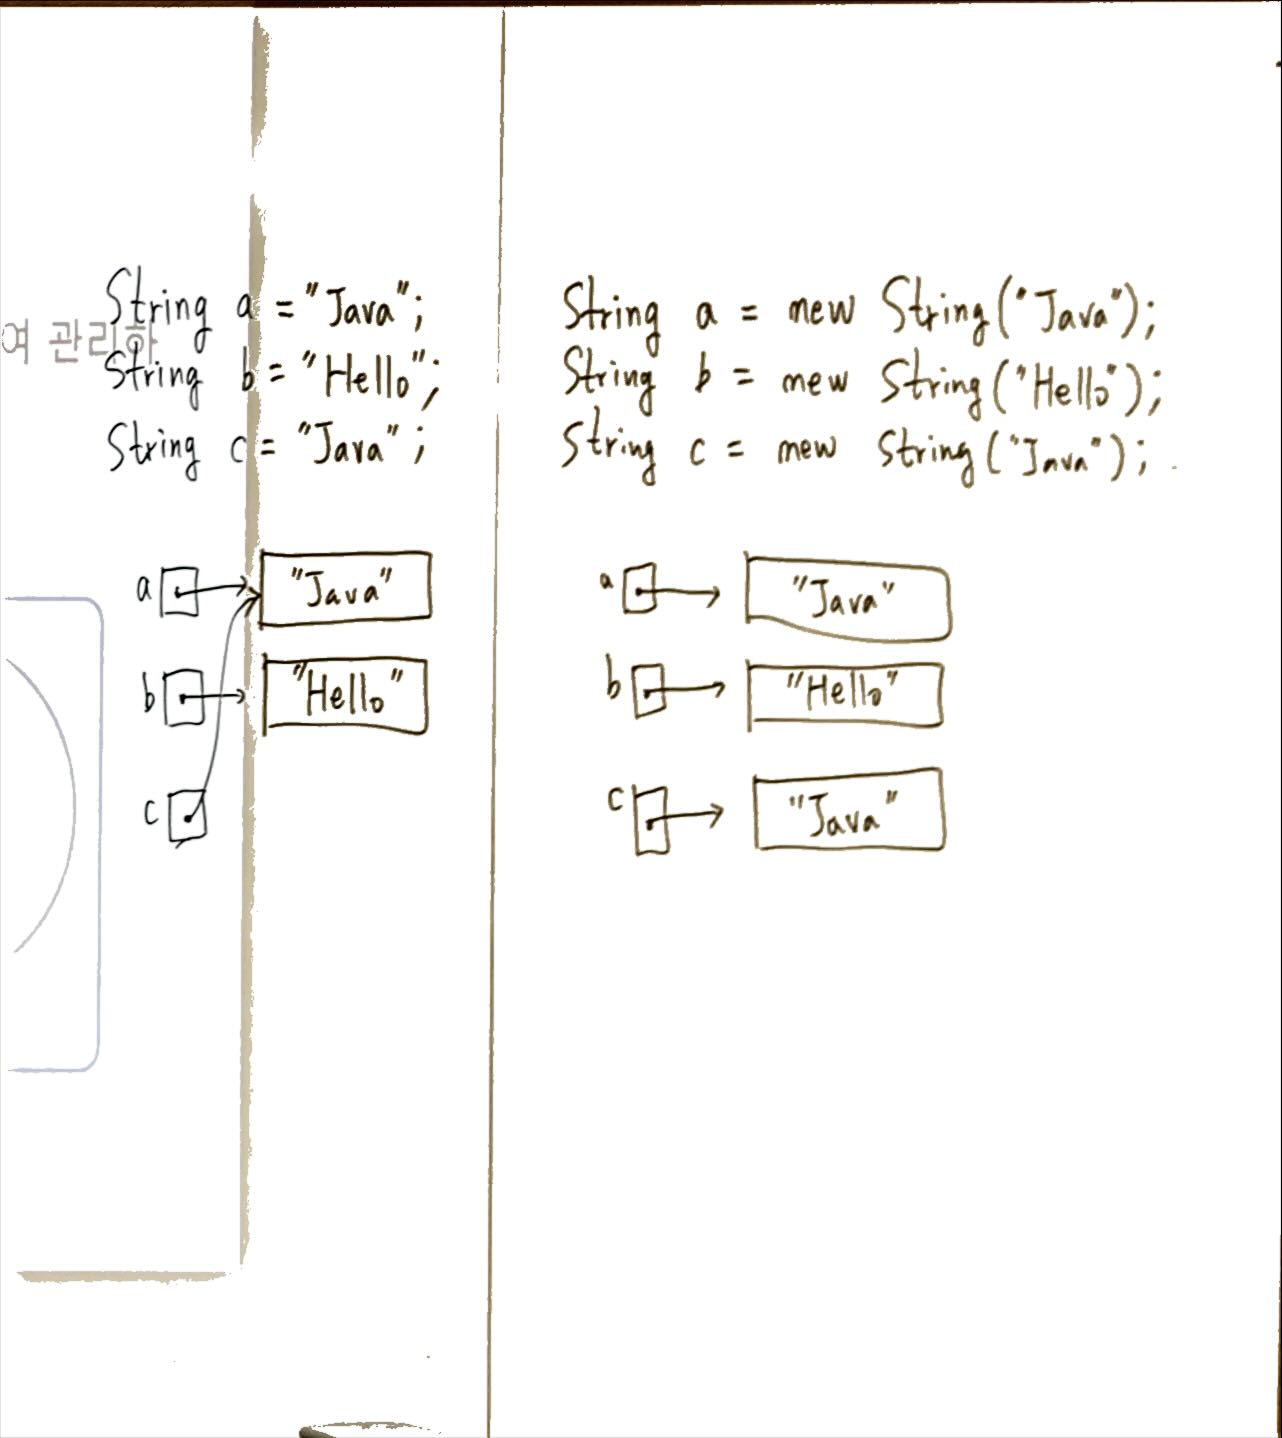 String a = "Java";
String b = "Hello";
String c = "Java";
여 관리하
a "Java"
b "Hello"
c
String a = new String("Java");
String b = new String("Hello");
String c = new String("Java");
a "Java"
b "Hello"
c "Java"